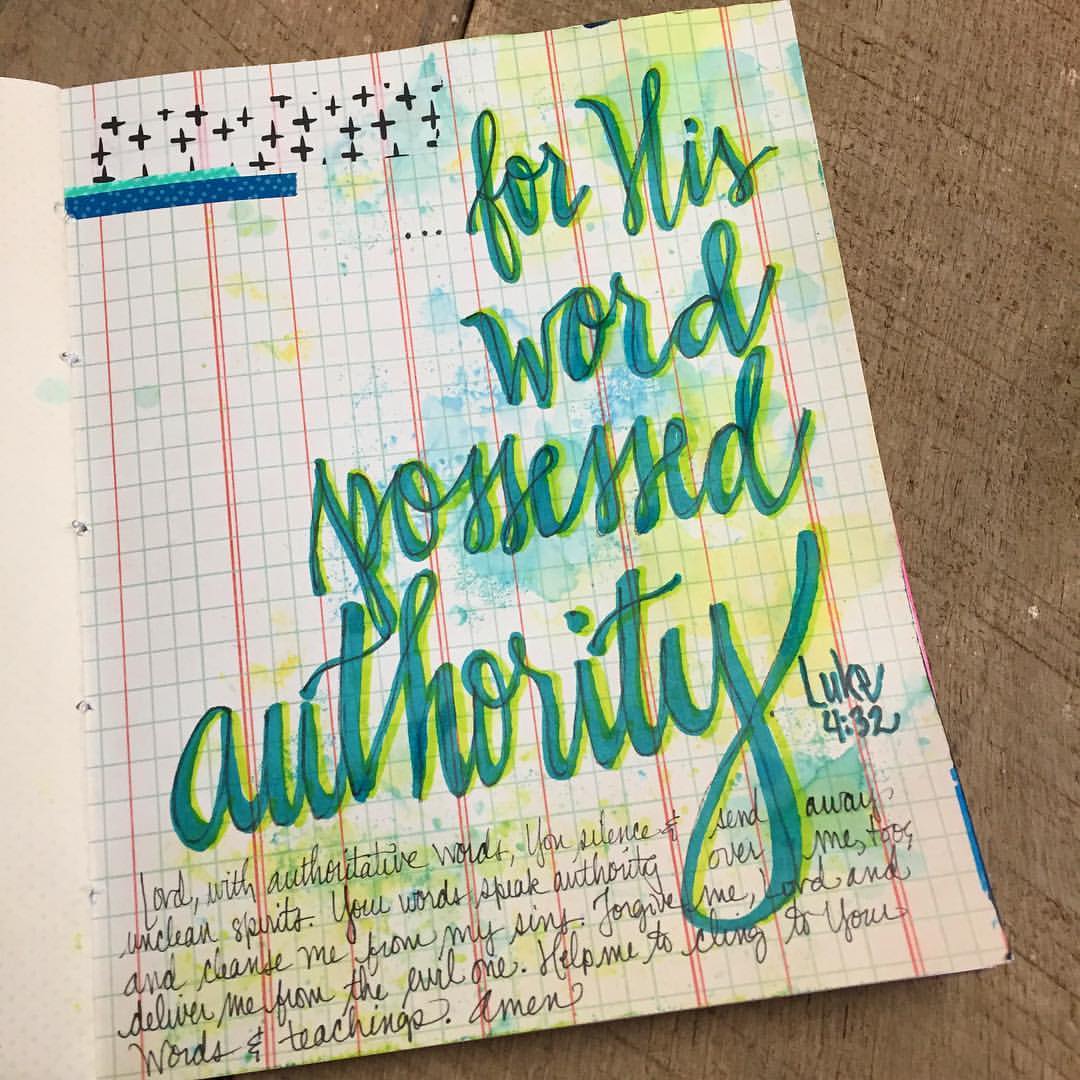 ... for His
word
possessed
authority
Luke
4:32
Lord, with authoritative words, You silence & send away
unclean spirits. Your words speak authority over me, too,
and cleanse me from my sins. Forgive me, Lord and
deliver me from the evil one. Help me to cling to Your
Words & teachings. Amen